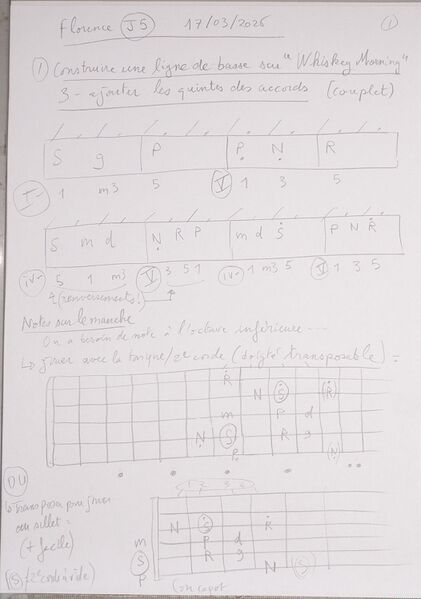 Florence J5 17/03/2026 1
1) Construire une ligne de basse sur "Whiskey Morning"
3 - ajouter les quintes des accords (couplet)
S g P P N R
I- 1 m3 5 V 1 3 5
S m d N R P m d S P N R
IV- 5 1 m3 V 3 5 1 IV- 1 m3 5 V 1 3 5
(renversements!)
Notes sur le manche
On a besoin de note à l'octave inférieure ...
↳ jouer avec la tonique/2e corde (doigté transposable) =
R
N S R
m P d
N S R g
P N
OU
↳ Transposer pour jouer
au sillet =
(+ facile)
(S = 2e corde à vide)
1 2 3 4
N S R
m P d
S R g
P N S
capot